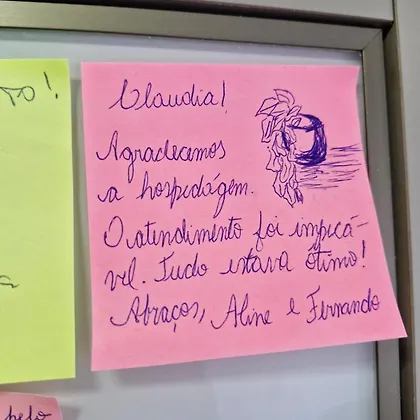 TO!
Claudia!
Agradecemos
a hospedágem.
O atendimento foi impicá-
vel. Tudo estava ótimo!
Abraços, Aline e Fernando
pelo